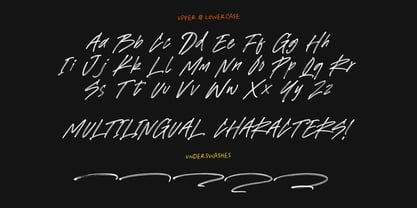 UPPER & LOWERCASE
Aa Bb Cc Dd Ee Ff Gg Hh
Ii Jj Kk Ll Mm Nn Oo Pp Qq Rr
Ss Tt Uu Vv Ww Xx Yy Zz
MULTILINGUAL CHARACTERS!
UNDERSWASHES